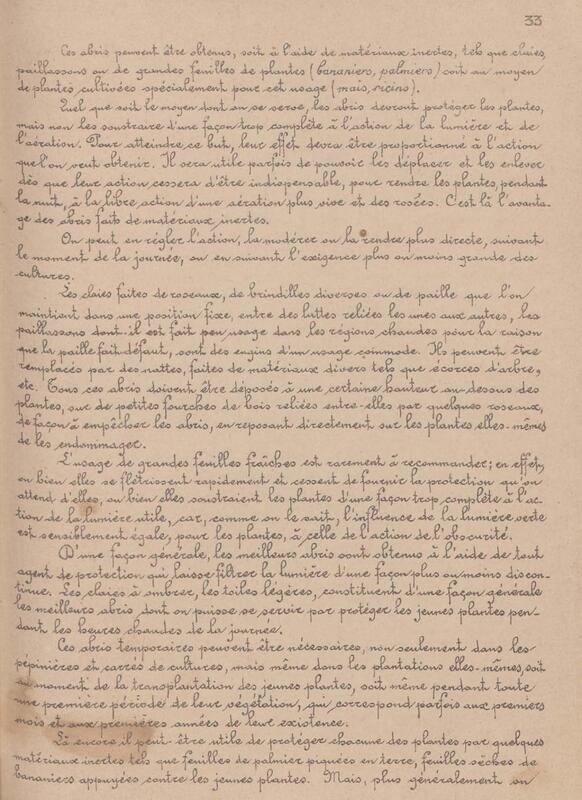 33
Ces abris peuvent être obtenus, soit à l'aide de matériaux inertes, tels que claies,
paillassons ou de grandes feuilles de plantes (bananiers, palmiers) soit au moyen
de plantes cultivées spécialement pour cet usage (maïs, ricins).
Quel que soit le moyen dont on se serve, les abris devront protéger les plantes,
mais non les soustraire d'une façon trop complète à l'action de la lumière et de
l'aération. Pour atteindre ce but, leur effet devra être proportionné à l'action
que l'on veut obtenir. Il sera utile parfois de pouvoir les déplacer et les enlever
dès que leur action cessera d'être indispensable, pour rendre les plantes, pendant
la nuit, à la libre action d'une aération plus vive et des rosées. C'est là l'avanta-
ge des abris faits de matériaux inertes.
On peut en régler l'action, la modérer ou la rendre plus directe, suivant
le moment de la journée, ou en suivant l'exigence plus ou moins grande des
cultures.
Les claies faites de roseaux, de brindilles diverses ou de paille que l'on
maintient dans une position fixe, entre des lattes reliées les unes aux autres, les
paillassons dont il est fait peu usage dans les régions chaudes pour la raison
que la paille fait défaut, sont des engins d'un usage commode. Ils peuvent être
remplacés par des nattes, faites de matériaux divers tels que écorces d'arbre,
etc. Tous ces abris doivent être déposés à une certaine hauteur au-dessus des
plantes, sur de petites fourches de bois reliées entre-elles par quelques roseaux,
de façon à empêcher les abris, en reposant directement sur les plantes elles-mêmes
de les endommager.
L'usage de grandes feuilles fraîches est rarement à recommander; en effet,
ou bien elles se flétrissent rapidement et cessent de fournir la protection qu'on
attend d'elles, ou bien elles soustraient les plantes d'une façon trop complète à l'ac-
tion de la lumière utile, car, comme on le sait, l'influence de la lumière verte
est sensiblement égale, pour les plantes, à celle de l'action de l'obscurité.
D'une façon générale, les meilleurs abris sont obtenus à l'aide de tout
agent de protection qui laisse filtrer la lumière d'une façon plus ou moins discon-
tinue. Les claies à ombrer, les toiles légères, constituent d'une façon générale
les meilleurs abris dont on puisse se servir par protéger les jeunes plantes pen-
dant les heures chaudes de la journée.
Ces abris temporaires peuvent être nécessaires, non seulement dans les
pépinières et carrés de cultures, mais même dans les plantations elles-mêmes, soit
au moment de la transplantation des jeunes plantes, soit même pendant toute
une première période de leur végétation, qui correspond parfois aux premiers
mois et aux premières années de leur existence.
Là encore il peut-être utile de protéger chacune des plantes par quelques
matériaux inertes tels que feuilles de palmier piquées en terre, feuilles sèches de
bananiers appuyées contre les jeunes plantes. Mais, plus généralement on